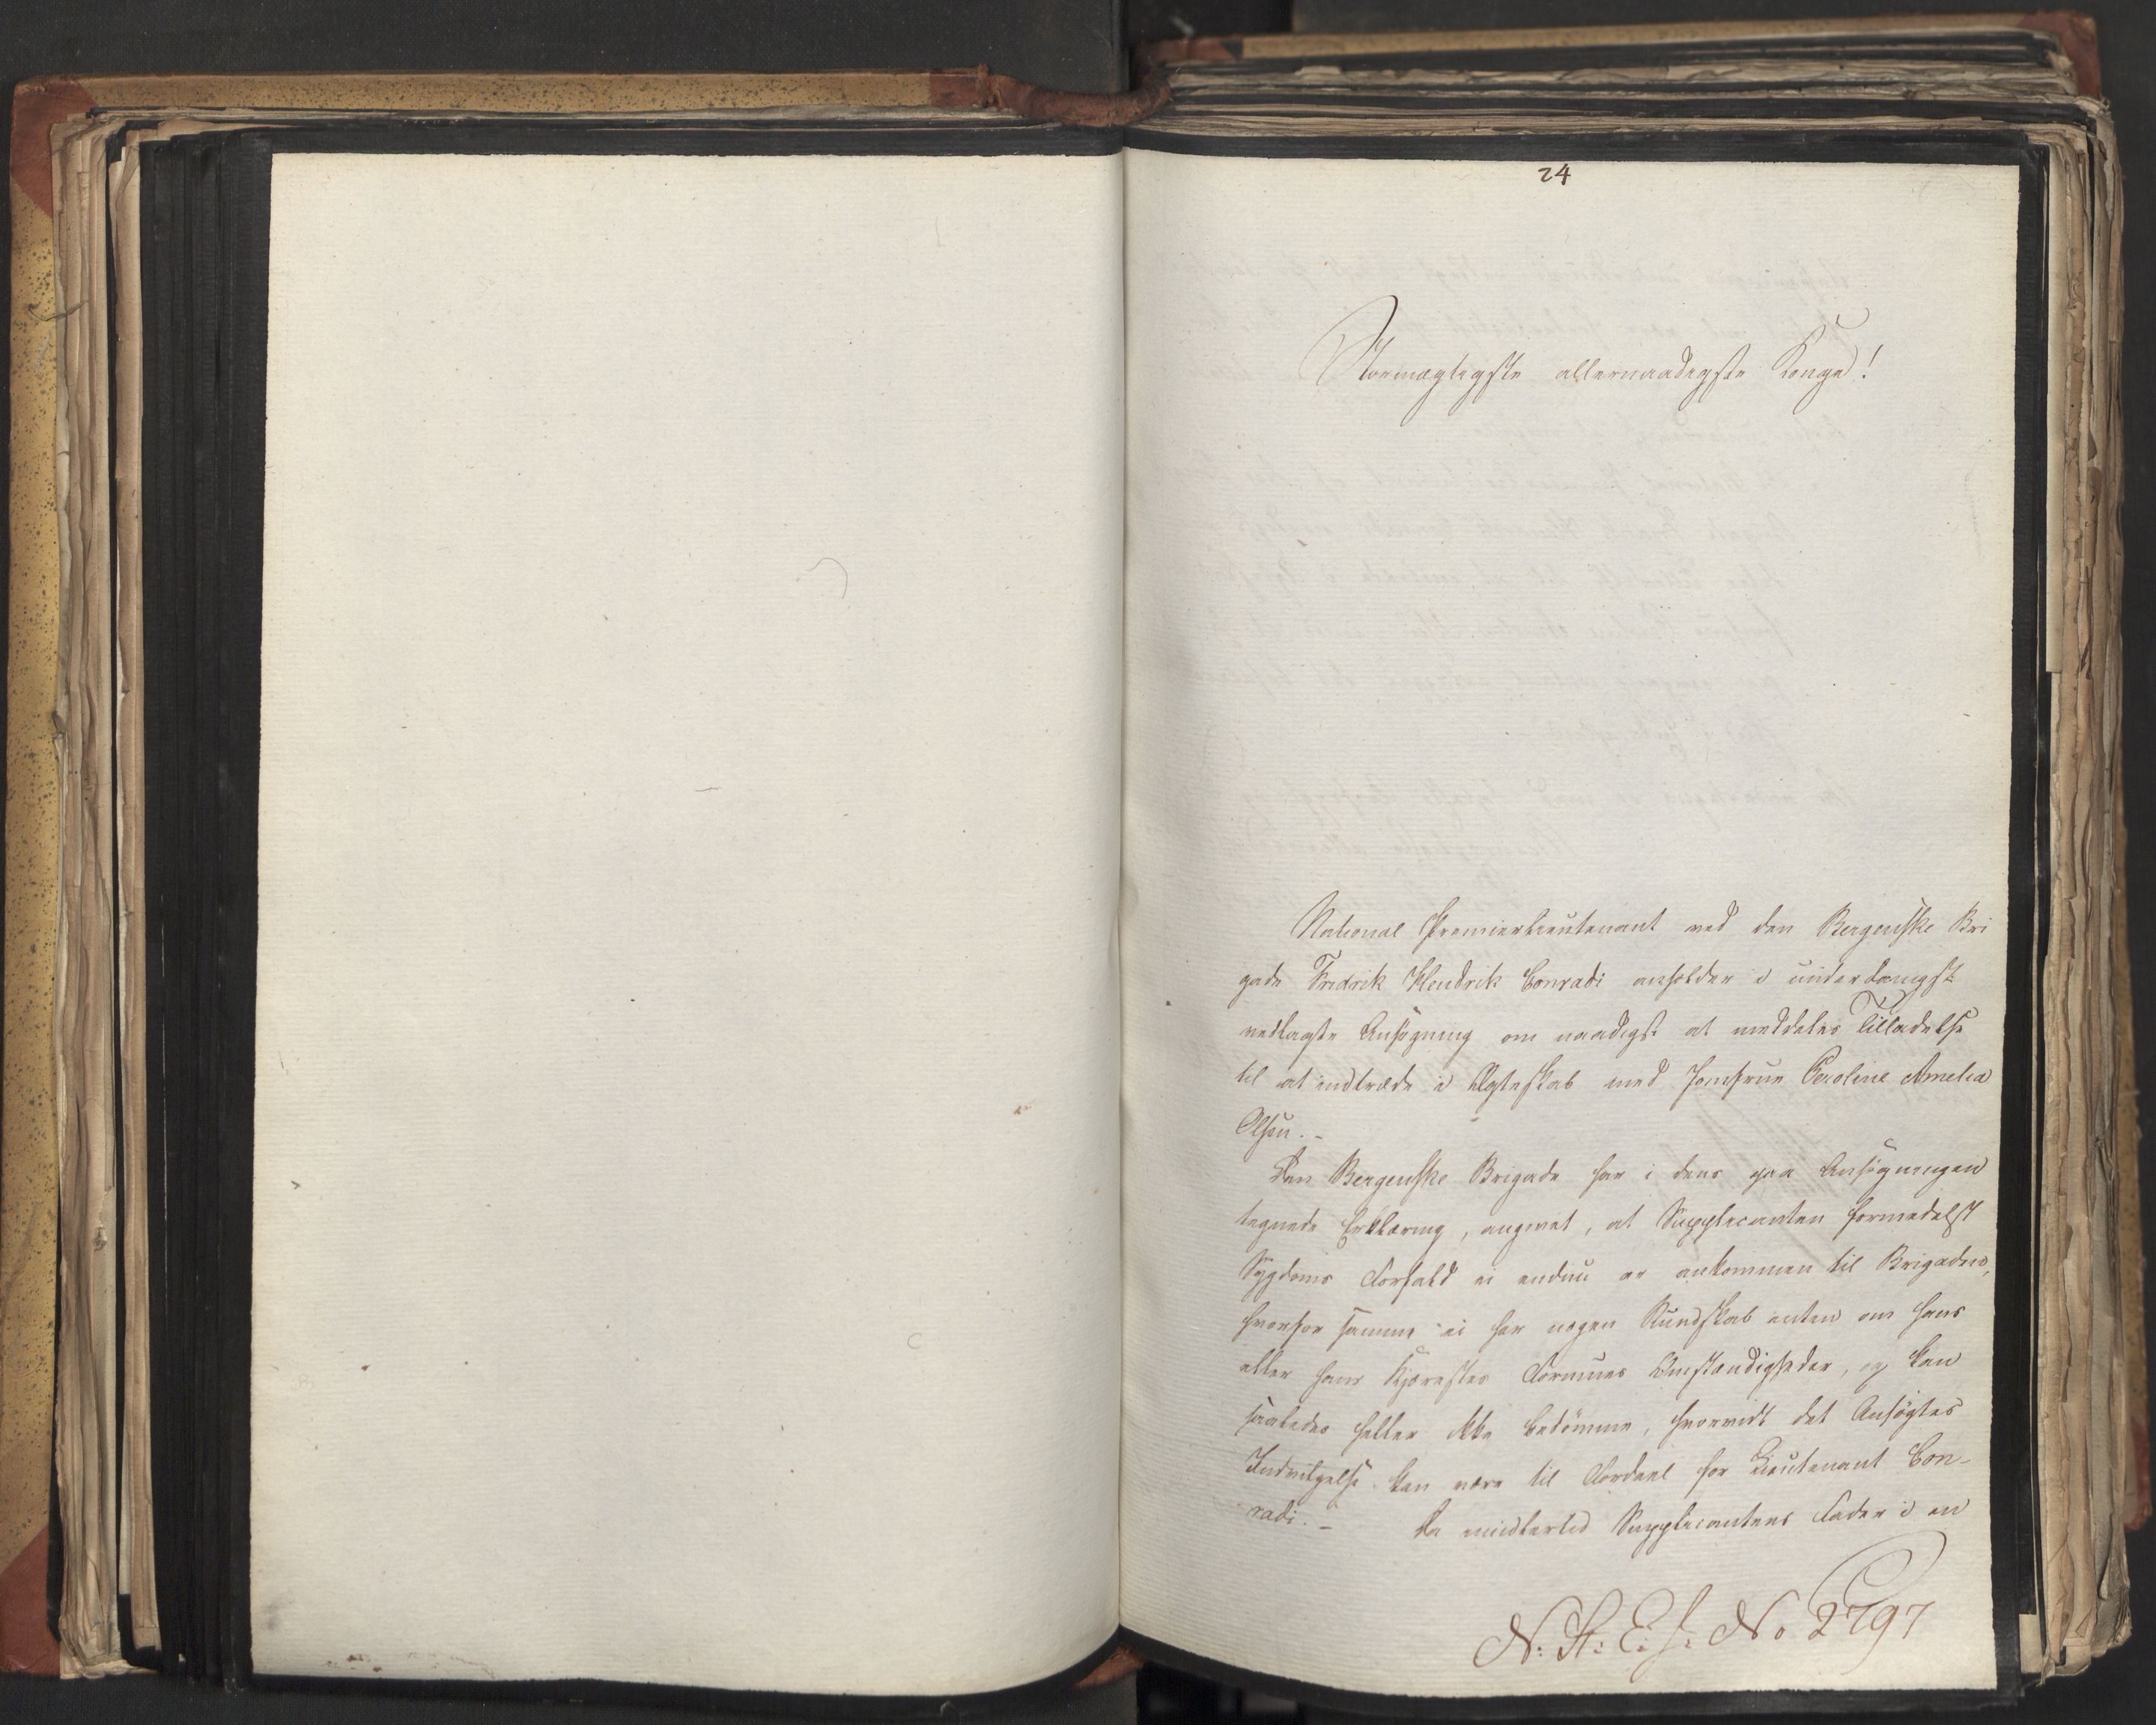 24
Stormægtigste allernaadigste Konge!
National Premierlieutenant ved den Bergenske Bri
gade Fredrik Hendrik Conradi anholder i underdanigst
vedlagte Ansøgning om naadigst at meddeles Tilladelse
til at indtræde i Ægteskab med Jomfrue Caroline Amelia
Olsen. -
Den Bergenske Brigade har i dens paa Ansøgningen
tegnede Erklæring, angivet, at Supplicanten formedelst
Sygdoms Forfald ei endnu er ankommen til Brigaden,
hvorfor samme ei har nogen Kundskab enten om hans
eller hans Kjærestes Formues Omstændigheder, og kan
saaledes heller ikke bedømme, hvorvidt det Ansøgtes
Indvilgelse kan være til Fordeel for Lieutenant Con-
radi. - Da imidlertid Supplicantens Fader i en
N: St: E: f: No 2797